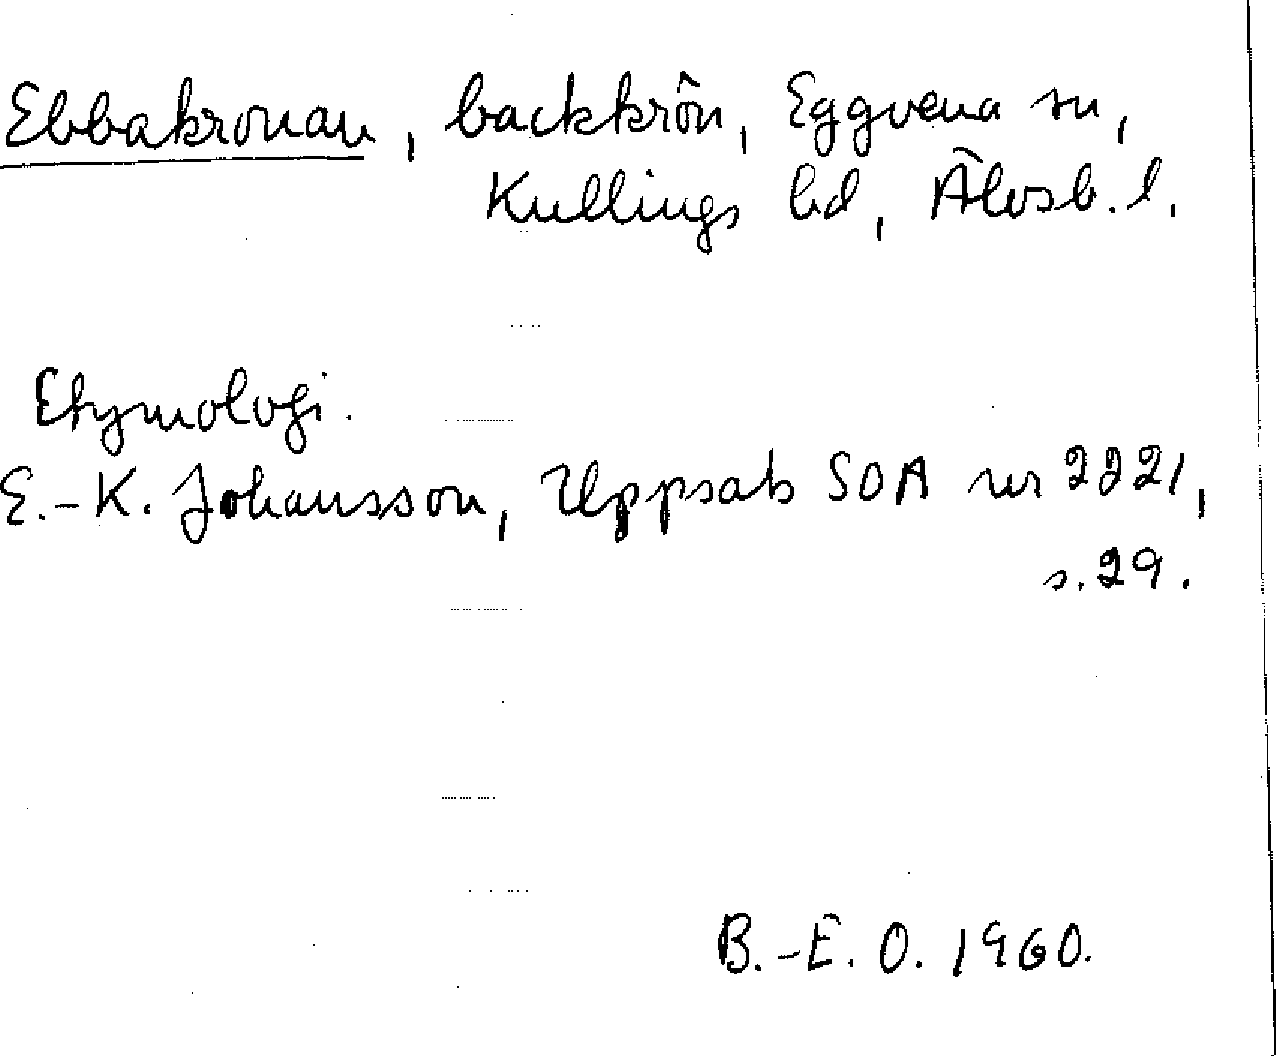 Ebbakronan, backkrön, Eggvena sn,
Kullings hd, Älvsb. l.
Etymologi.
E.-K. Johansson, Uppsats SOA nr 2221,
s. 29.
B.-E. O. 1960.